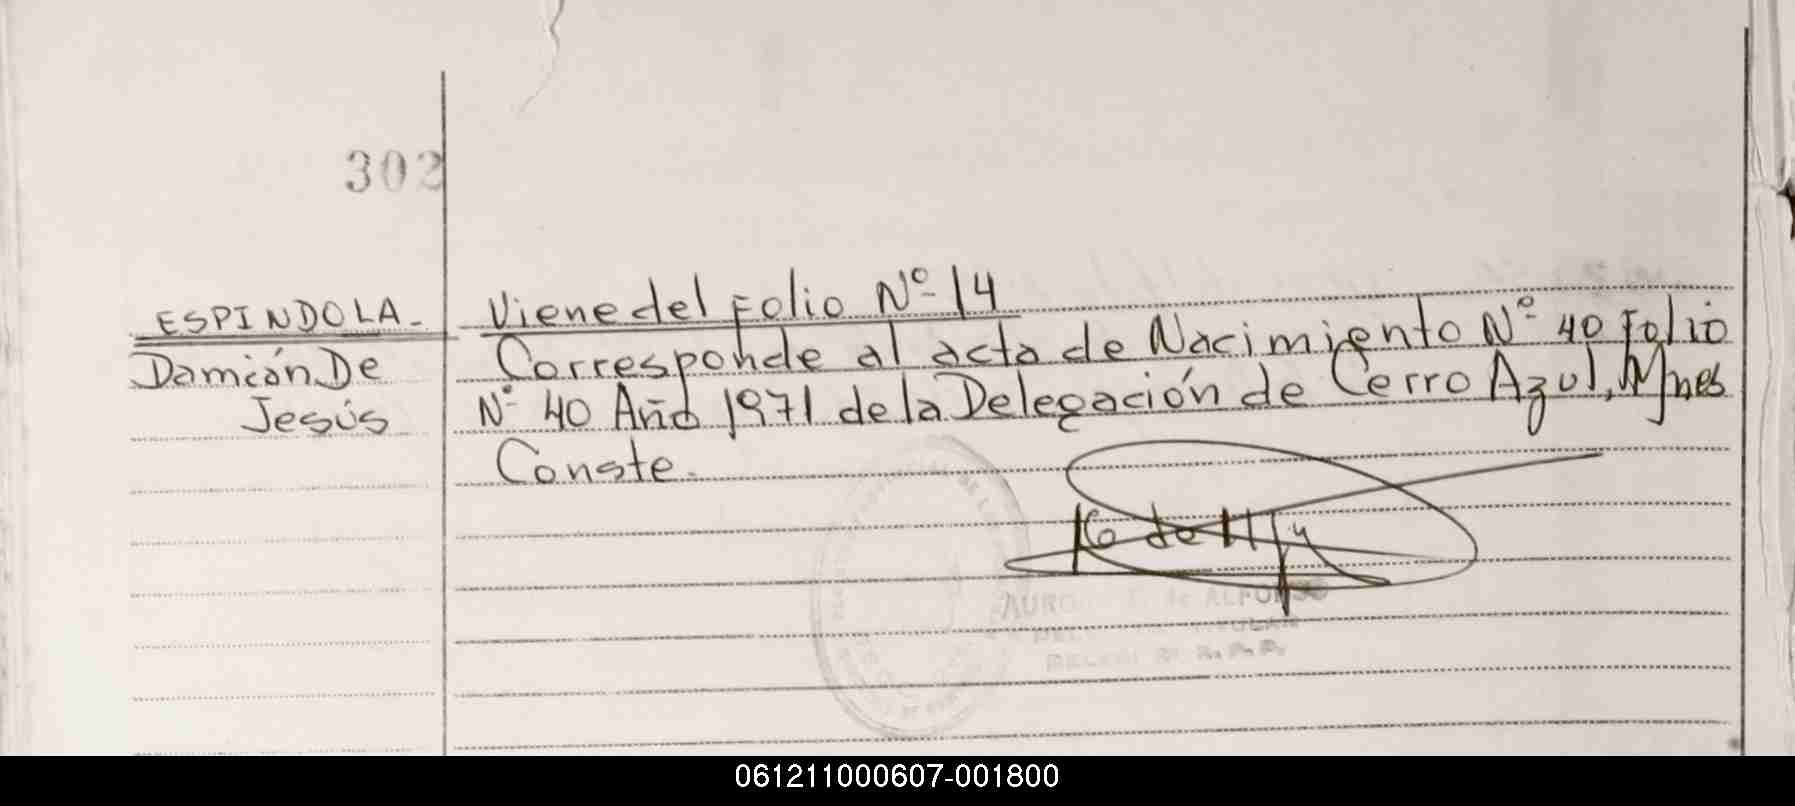 302
ESPINDOLA-
Damián De
Jesús
Viene del Folio Nº 14
Corresponde al acta de Nacimiento Nº 40 Folio
Nº 40 Año 1971 de la Delegación de Cerro Azul, Mnes
Conste.
de ALFONSO
R.P.P.
061211000607-001800